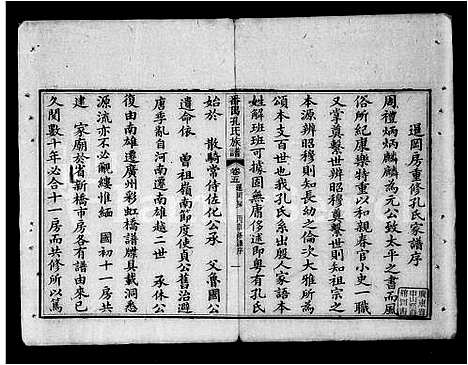 暹岡房重修孔氏家譜序
周禮炳炳麟麟為元公致太平之書而風
俗所紀康樂特重以和親春官小史一職
又掌奠繫世辨昭穆則奠繫世則知祖宗之
本源辨昭穆則知長幼之倫次大雅所為
頌本支百世也我孔氏系出殷人家語本
姓解班班可據固無庸侈述即粵有孔氏
番禺孔氏族譜
卷五
一
始於　散騎常侍佐化公承　父魯國公
遺命依　曾祖嶺南節度使貞公舊治避
唐季亂自河南遷南雄越二世　承休公
復由南雄遷廣州彩虹橋譜牒具載洞悉
源流丕必覼縷惟緬　國初十一房共
建　家廟於省新橋市房各有譜由來已
久閱數十年必合十一房而共修所以篤
廣東省
中山圖書
館圖書